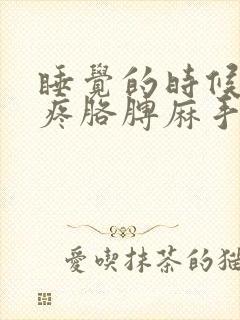 睡覺的時候
疼胳脾麻手
愛喫抹茶的猫